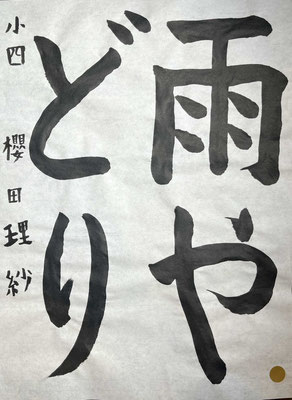 雨や
どり
小四 櫻田理紗